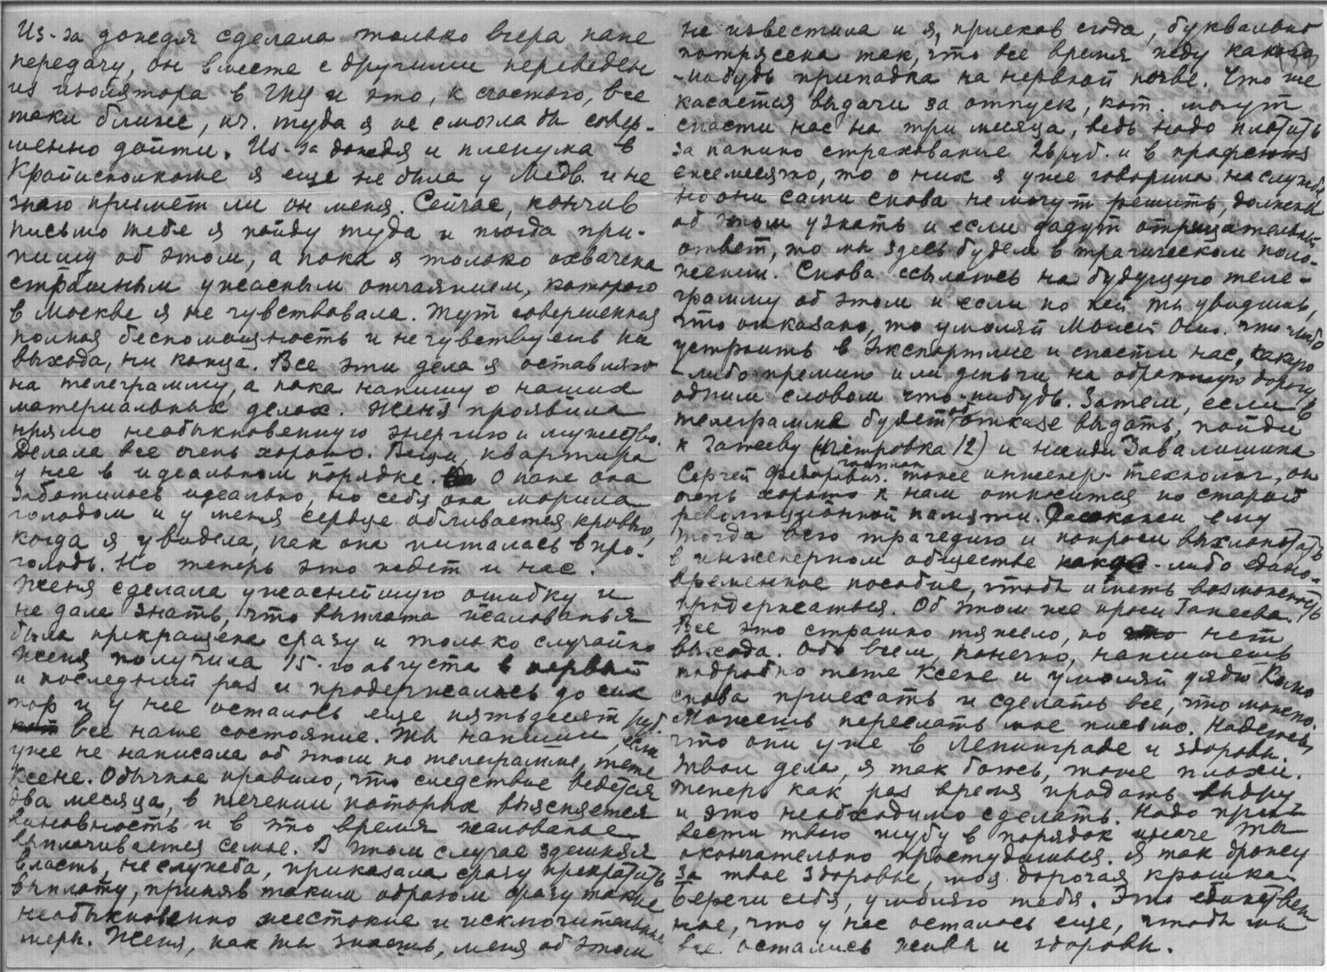 Из-за дождя сделала только вчера папе
передачу, он вместе с другими переведен
из изолятора в ГПУ и это, к счастью, все
таки ближе, и.ч. туда я не смогла бы совер-
шенно дойти. Из-за дождя и пленума в
Крайисполкоме я еще не была у Медв. и не
знаю примет ли он меня. Сейчас, кончив
письмо тебе я пойду туда и тогда при-
пишу об этом, а пока я только охвачена
страшным ужасным отчаянием, которого
в Москве я не чувствовала. Тут совершенная
полная беспомощность и не чувствуешь ни
выхода, ни конца. Все эти дела я оставляю
на телеграмму, а пока напишу о наших
материальных делах. Женя проявила
прямо необыкновенную энергию и мужество.
Делала все очень хорошо. Вещи, квартира
у нее в идеальном порядке. О папе она
заботилась идеально, но себя она морила
голодом и у меня сердце обливается кровью,
когда я увидела, как она питалась впро-
голодь. Но теперь это ждет и нас.
Женя сделала ужаснейшую ошибку и
не дала знать, что выплата жалованья
была прекращена сразу и только случайно
Женя получила 15-го августа в первый
и последний раз и продержалась до сих
пор и у нее осталось еще пятьдесят руб.
все наше состояние. Ты напиши, если
уже не написала об этом по телеграмме, тете
Ксене. Обычное правило, что следствие ведется
два месяца, в течении которых выясняется
виновность и в это время жалованье
выплачивается семье. В этом случае здешняя
власть, не служба, приказала сразу прекратить
выплату, приняв таким образом сразу такие
необыкновенно жестокие и исключительные
меры. Женя, как ты знаешь, меня об этом
не известила и я, приехав сюда, буквально
потрясена так, что все время жду какого
-нибудь припадка на нервной почве. Что же
касается выдачи за отпуск, кот. могут
спасти нас на три месяца, ведь надо платить
за папино страхование 26 руб. и в профсоюз
ежемесячно, то о них я уже говорила на службе
но они сами снова не могут решить, должны
об этом узнать и если дадут отрицательный
ответ, то мы здесь будем в трагическом поло-
жении. Снова ссылаюсь на будущую теле-
грамму об этом и если по ней ты увидишь,
что отказано, то умоляй Моисея Осип. что либо
устроить в Экспортлесе и спасти нас, какую
-либо премию или деньги на обратную дорогу
одним словом что-нибудь. Затем, если в
телеграмме будет об отказе выдать, пойди
к Ганееву (Петровка 12) и найди Завалишина
Сергей Федорович. тоже инженер-технолог, он
очень хорошо к нам относится по старой
революционной памяти. Расскажи ему
тогда всю трагедию и попроси выхлопотать
в инженерном обществе какое-либо едино-
временное пособие, чтобы иметь возможность
продержаться. Об этом же проси Ганеева.
Все это страшно тяжело, но нет
выхода. Обо всем, конечно, напишешь
подробно тете Ксене и умоляй дядю Колю
снова приехать и сделать все, что можно.
Можешь переслать мое письмо. Надеюсь,
что они уже в Ленинграде и здоровы.
Твои дела, я так боюсь, тоже плохи.
Теперь как раз время продать выдру
и это необходимо сделать. Надо при-
вести твою шубу в порядок иначе ты
окончательно простудишься. Я так дрожу
за твое здоровье, моя дорогая крошка.
Береги себя, умоляю тебя. Это единствен
ное, что у нас осталось еще, чтобы мы
все остались живы и здоровы.